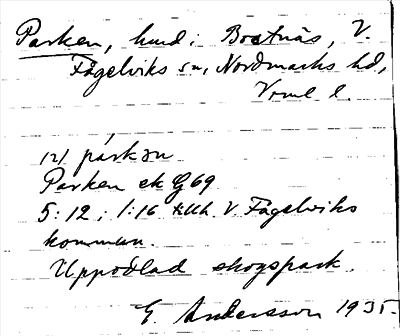 Parken, hmd i Bostnäs, V.
Fågelviks sn, Nordmarks hd,
Vrml l.
parkən
Parken ek G 69
5:12; 1:16 V. Fågelviks
kommun.
Uppodlad skogspark.
E. Andersson 1935.